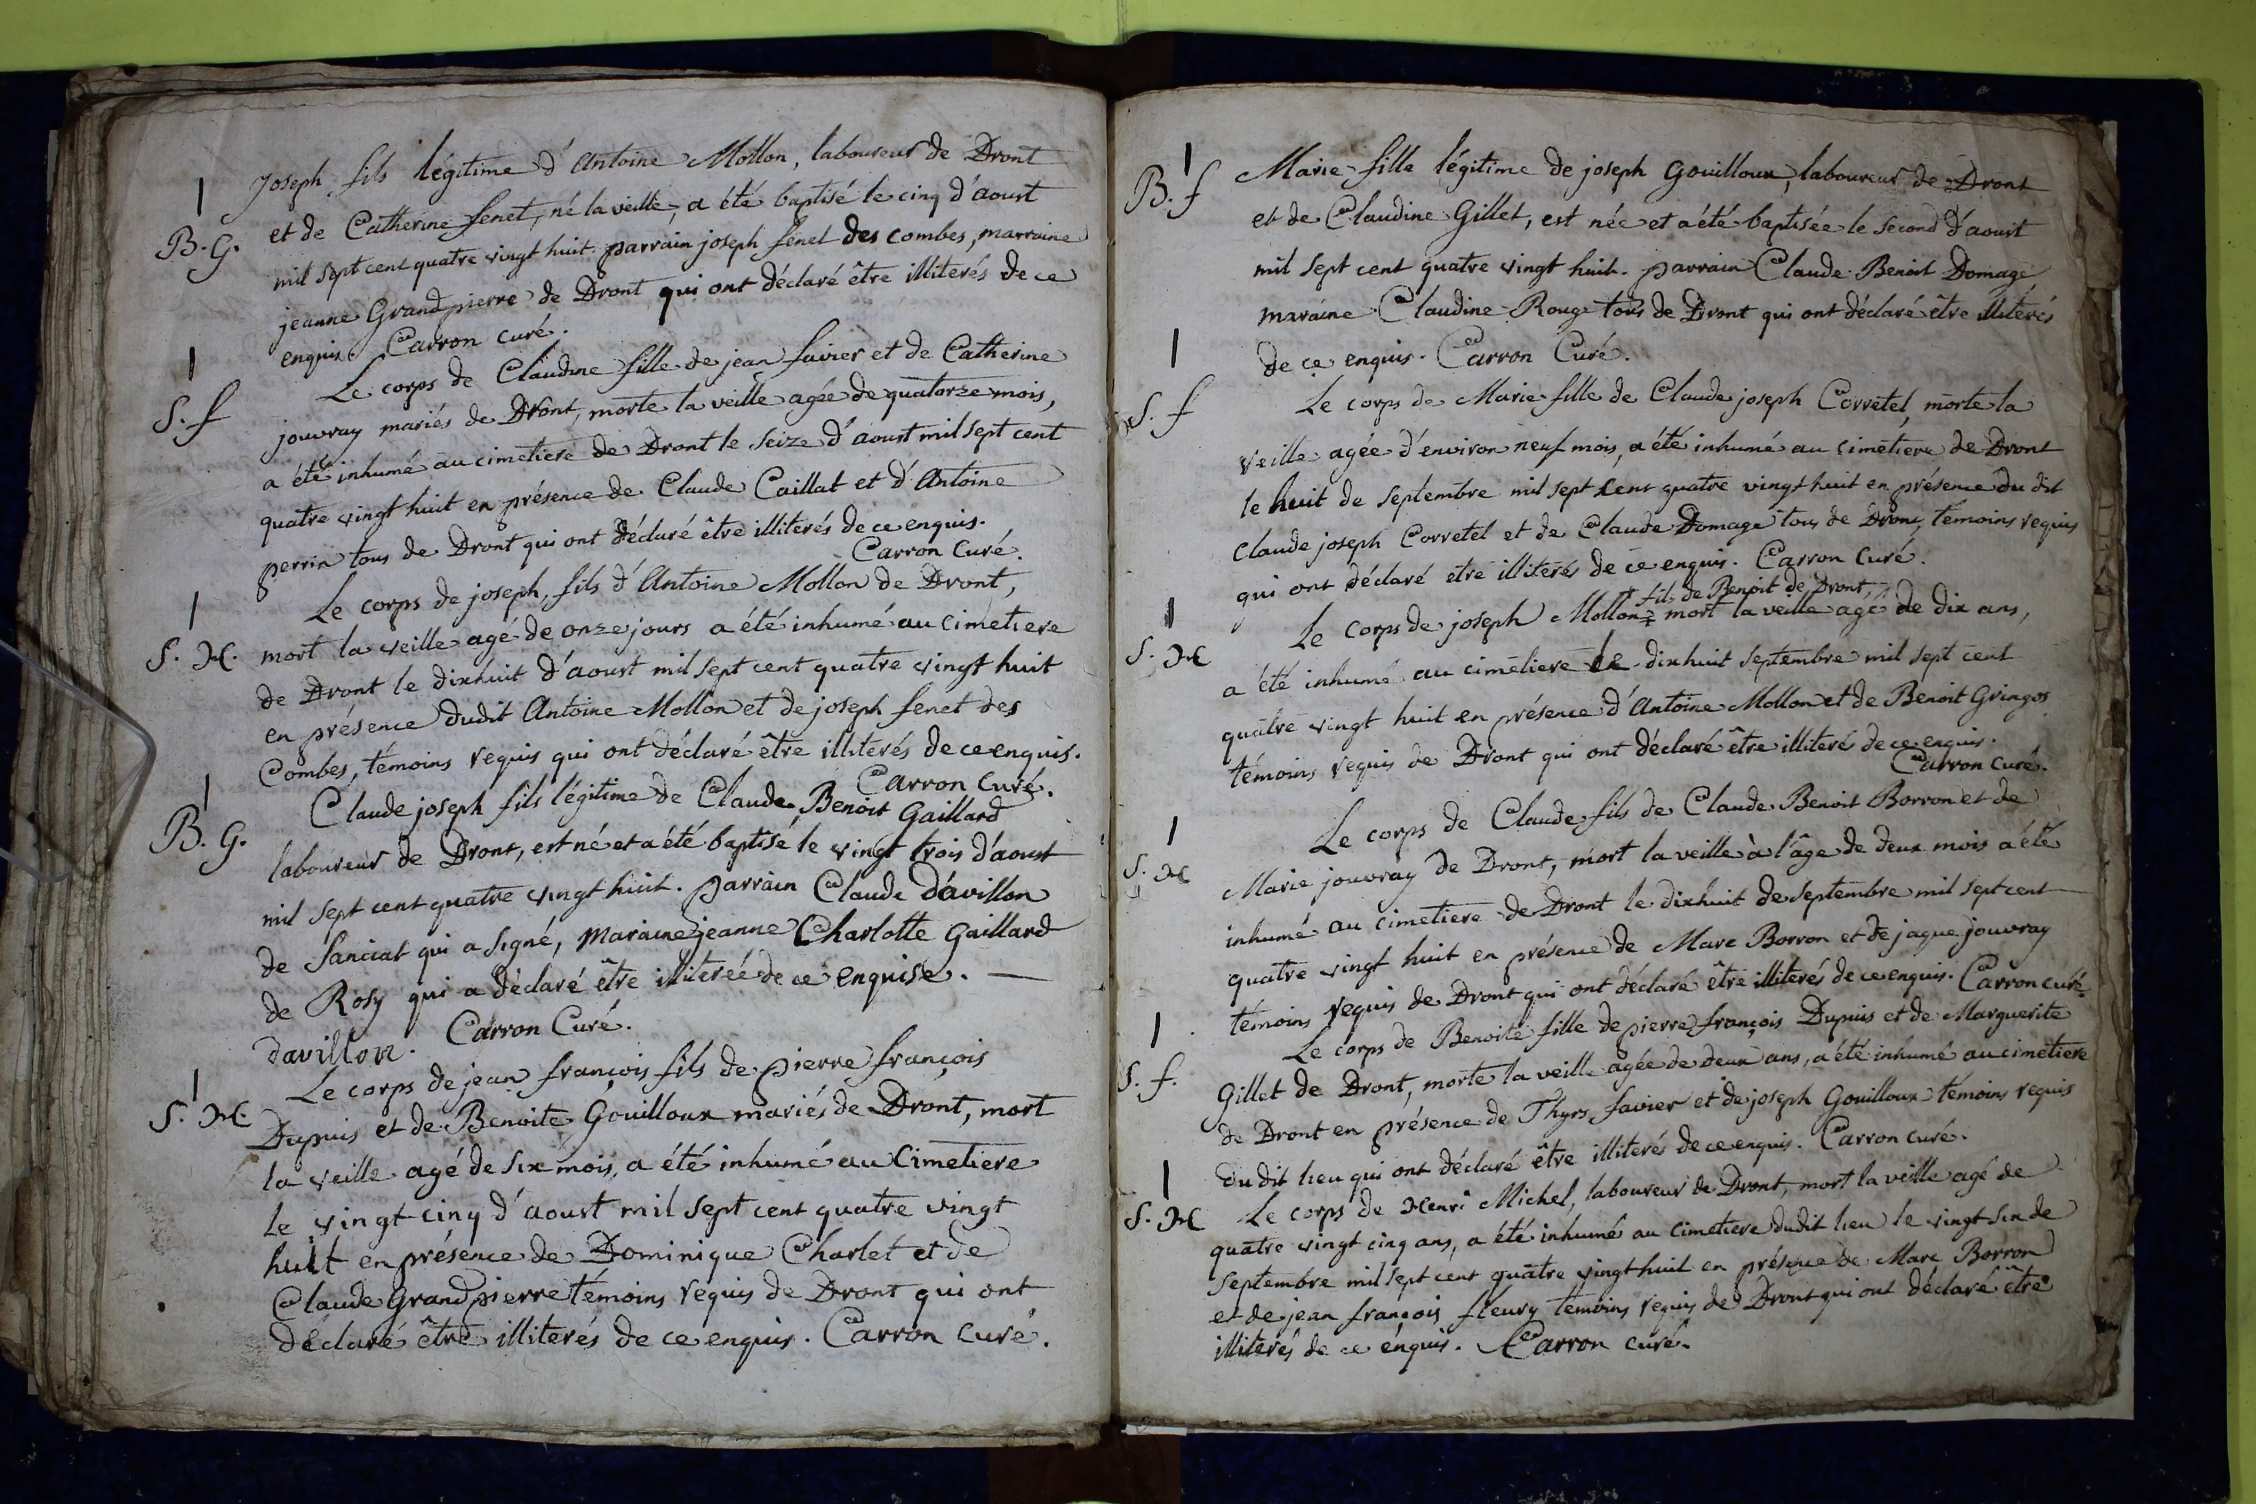 Joseph fils légitime d'Antoine Mollon, laboureur de Dront
B. G. et de Catherine fenet, né la veille, a été baptisé le cinq d'aoust
mil sept cent quatre vingt huit. parrain joseph fenet des combes, marraine
jeanne Grandpierre de Dront qui ont déclaré être illiterés de ce
enquis. Carron curé.
Le corps de Claudine fille de jean favier et de Catherine
S. f jouvray mariés de Dront, morte la veille agée de quatorze mois,
a été inhumé au cimetiere de Dront le seize d'aoust mil sept cent
quatre vingt huit en présence de Claude Caillat et d'Antoine
perrin tous de Dront qui ont déclaré être illiterés de ce enquis.
Carron Curé.
Le corps de joseph, fils d'Antoine Mollon de Dront,
S. M. mort la veille agé de onze jours a été inhumé au cimetiere
de Dront le dixhuit d'aoust mil sept cent quatre vingt huit
en présence dudit Antoine Mollon et de joseph fenet des
Combes, témoins requis qui ont déclaré être illiterés de ce enquis.
Carron Curé.
Claude joseph fils légitime de Claude Benoit Gaillard
B. G. laboureur de Dront, est né et a été baptisé le vingt trois d'aoust
mil sept cent quatre vingt huit. parrain Claude davillon
de Sanciat qui a signé, maraine jeanne Charlotte Gaillard
de Rosy qui a déclaré être illiterée de ce enquise.
davillon. Carron Curé.
Le corps de jean françois fils de pierre françois
S. M. Dupuis et de Benoite Gouilloux mariés de Dront, mort
la veille agé de six mois, a été inhumé au Cimetiere
le vingt cinq d'aoust mil sept cent quatre vingt
huit en présence de Dominique Charlet et de
Claude Grandpierre témoins requis de Dront qui ont
déclaré être illiterés de ce enquis. Carron curé.
Marie fille légitime de joseph Gouilloux, laboureur de Dront
B. f et de Claudine Gillet, est née et a été baptisée le second d'aoust
mil sept cent quatre vingt huit. parrain Claude Benoit Domage
maraine Claudine Rouge tous de Dront qui ont déclaré être illiterés
de ce enquis. Carron Curé.
S. f Le corps de Marie fille de Claude joseph Corretel, morte la
veille agée d'environ neuf mois, a été inhumé au cimetiere de Dront
le huit de septembre mil sept cent quatre vingt huit en présence du dit
Claude joseph Corretel et de Claude Domage tous de Dront, témoins requis
qui ont déclaré etre illiterés de ce enquis. Carron curé.
fils de Benoit de Dront,
Le corps de joseph Mollon mort la veille agé de dix ans,
S. M a été inhumé au cimetiere le dixhuit septembre mil sept cent
quatre vingt huit en présence d'Antoine Mollon et de Benoit Gringos
témoins requis de Dront qui ont déclaré être illiterés de ce enquis.
Carron curé.
Le corps de Claude fils de Claude Benoit Borron et de
S. M Marie jouvray de Dront, mort la veille à l'âge de deux mois a été
inhumé au cimetiere de Dront le dixhuit de septembre mil sept cent
quatre vingt huit en présence de Marc Borron et de jaque jouvray
témoins requis de Dront qui ont déclaré être illiterés de ce enquis. Carron curé.
Le corps de Benoite fille de pierre françois Dupuis et de Marguerite
S. f. Gillet de Dront, morte la veille agée de deux ans, a été inhumé au cimetiere
de Dront en présence de Thyrs favier et de joseph Gouilloux témoins requis
dudit lieu qui ont déclaré être illiterés de ce enquis. Carron curé.
S. M Le corps de Henri Michel, laboureur de Dront, mort la veille agé de
quatre vingt cinq ans, a été inhumé au cimetiere dudit lieu le vingt six de
septembre mil sept cent quatre vingt huit en présence de Marc Borron
et de jean françois fleury témoins requis de Dront qui ont déclaré être
illiterés de ce enquis. Carron curé.